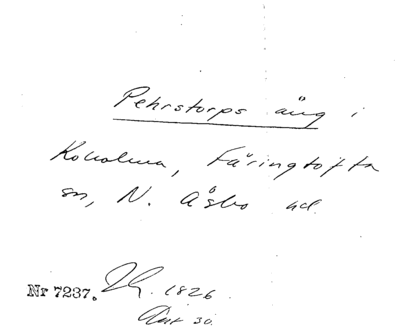 Pehrstorps äng i
Kokolma, Färingtofta
sn, N. Åsbo hd.
Nr 7237. 1826
30.